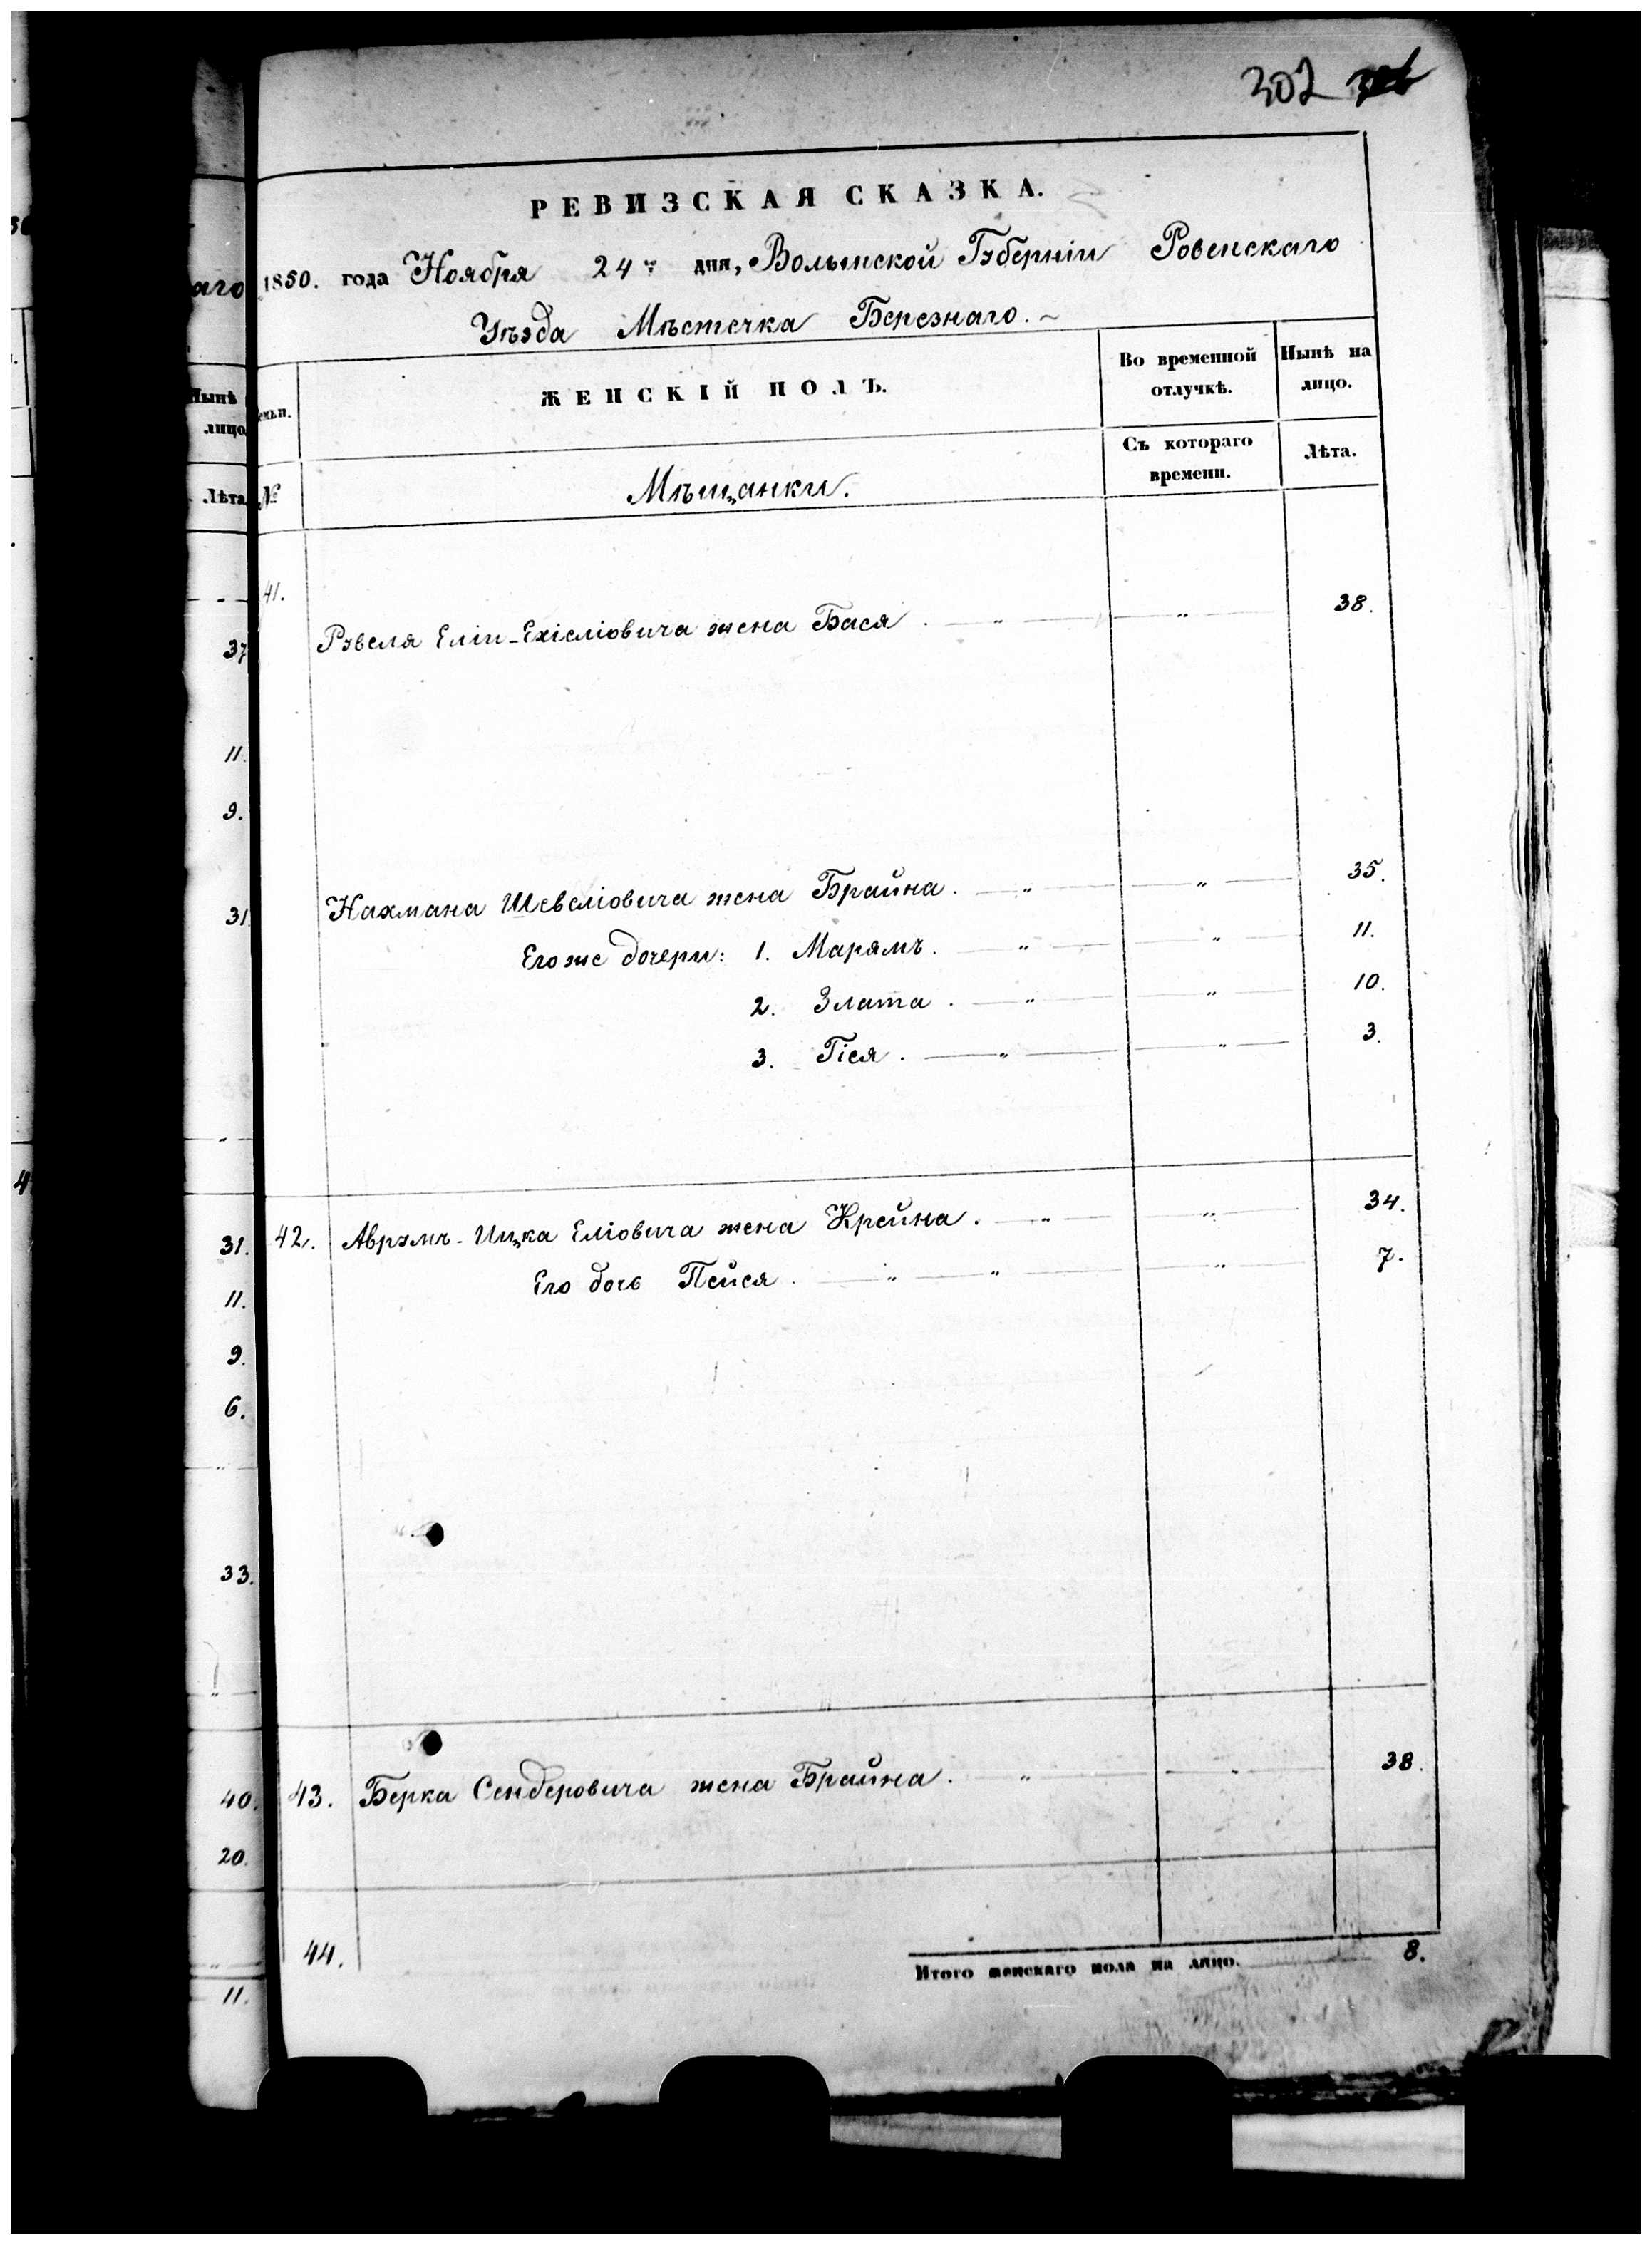 302
РЕВИЗСКАЯ СКАЗКА.
1850. года Ноября 24го дня, Волынской Губерніи Ровенскаго
Уѣзда Мѣстечка Березнаго. ~
аго
Нынѣ
лицо
Лѣта
ЖЕНСКІЙ ПОЛЪ.
Во временной отлучкѣ.
Нынѣ на лицо.
№
Мѣщанки.
Съ котораго времени.
Лѣта.
41.
37 Рувеля Еліи-Ехіеліовича жена Бася . — " — " — 38.
11.
9.
31 Нахмана Шевеліовича жена Брайна . — " — " — 35.
Его же дочери: 1. Марямъ . — " — " — 11.
2. Злата . — " — " — 10.
3. Гіся . — " — " — 3.
31. 42. Аврумъ-Ицка Еліовича жена Крейна . — " — " — 34.
11. Его дочь Пейся . — " — " — " — 7.
9.
6.
33.
40. 43. Берка Сендеровича жена Брайна . " — " — 38.
20.
44.
Итого женскаго пола на лицо. 8.
11.